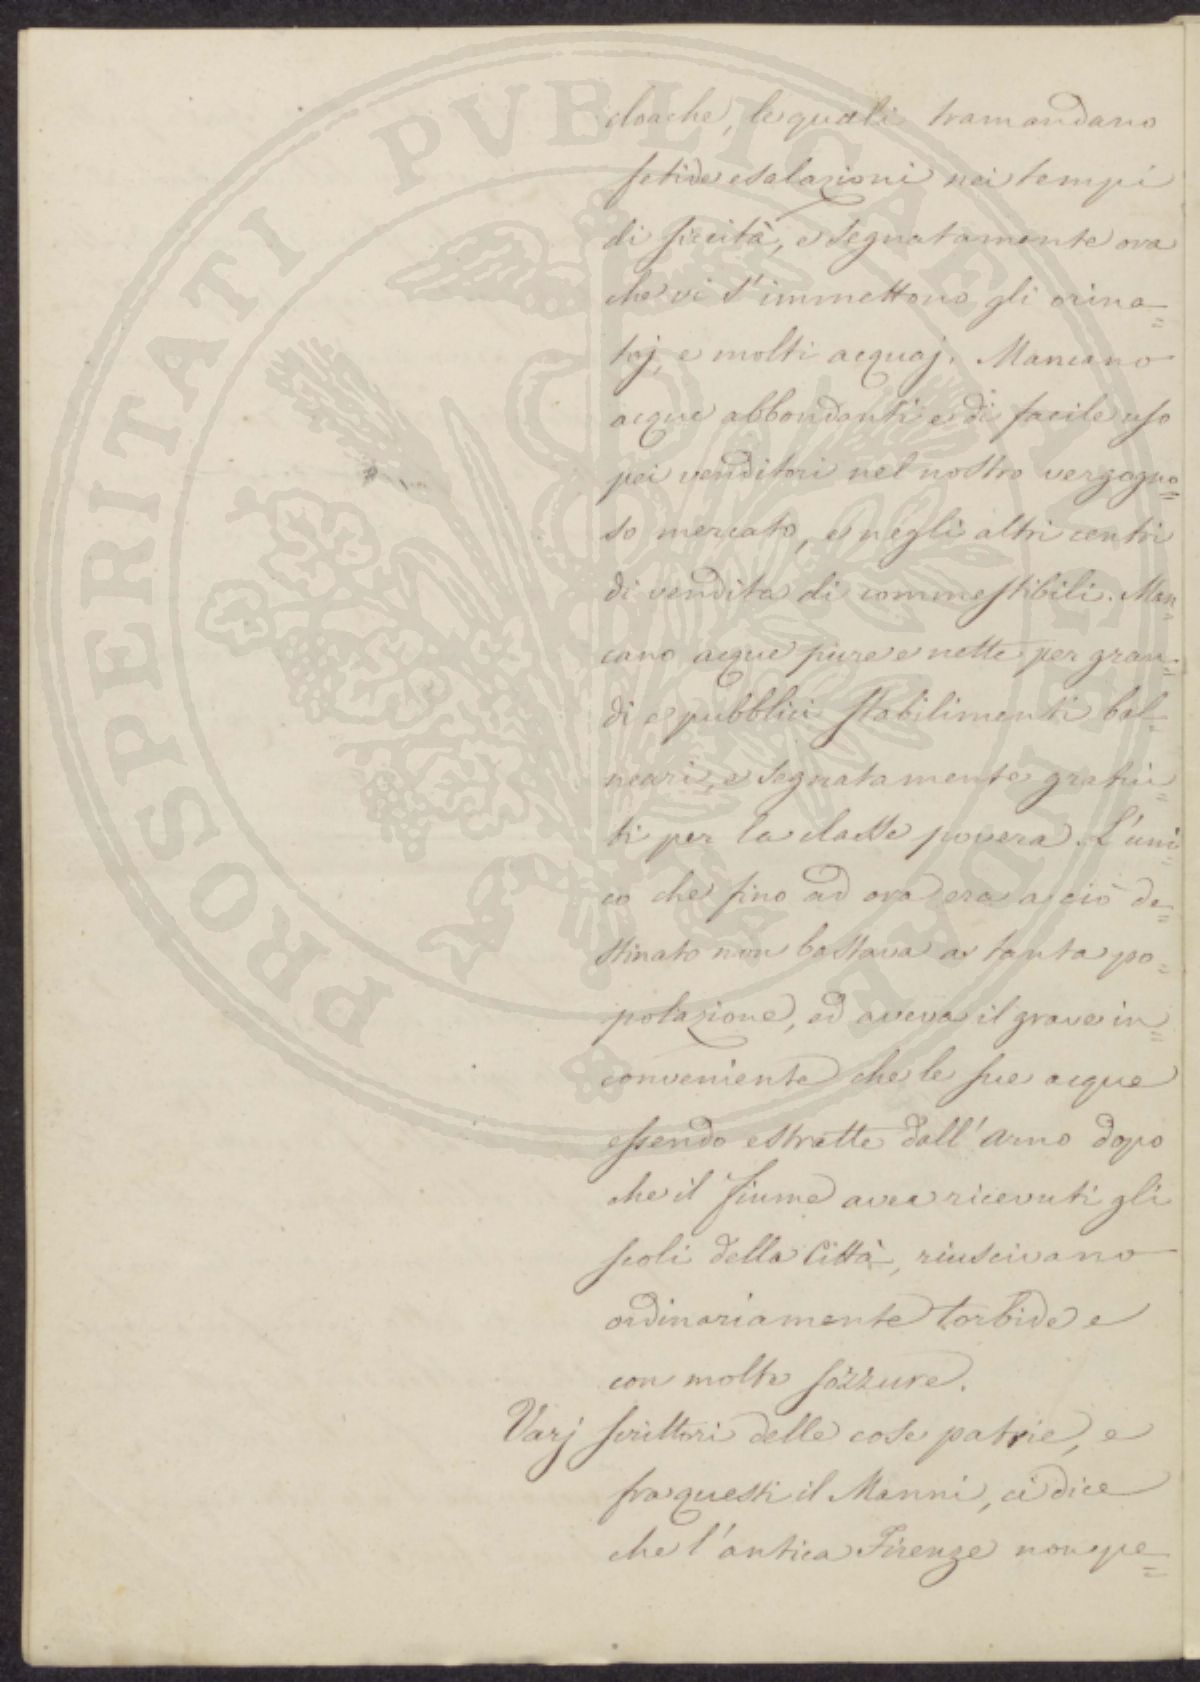 cloache, le quali tramandano
fetide esalazioni nei tempi
di siccità, e segnatamente ora
che vi s'immettono gli orina=
toj, e molti acquaj. Mancano
acque abbondanti e di facile uso
pei venditori nel nostro vergogno=
so mercato, e negli altri centri
di vendita di commestibili. Man=
cano acque pure e nette per gran=
di e pubblici stabilimenti bal=
neari, e segnatamente gratui=
ti per la classe povera. L'uni=
co che fino ad ora era a ciò de=
stinato non bastava a tanta po=
polazione, ed aveva il grave in=
conveniente che le sue acque
essendo estratte dall'Arno dopo
che il fiume avea ricevuti gli
scoli della Città, riuscivano
ordinariamente torbide e
con molte sozzure.
Varj scrittori delle cose patrie, e
fra questi il Manni, ci dice
che l'antica Firenze non pe=
PROSPERITATI PVBLICAE AVGENDAE